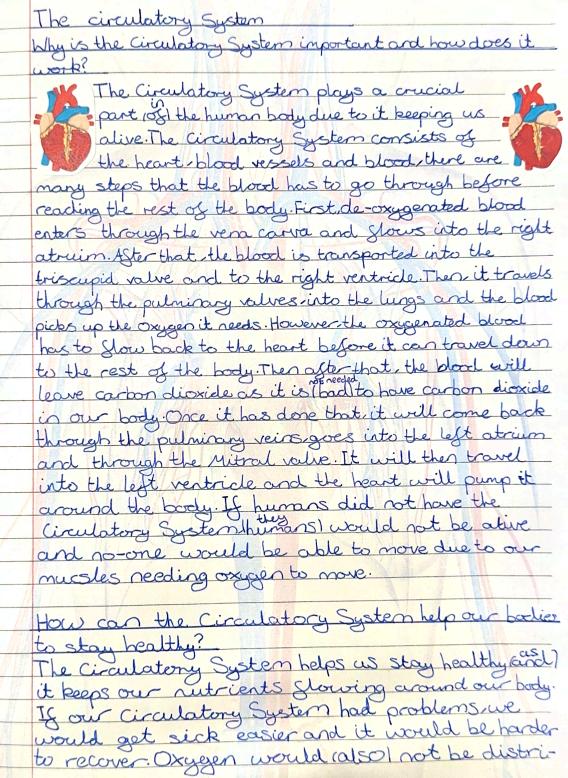 The circulatory System
Why is the Circulatory System important and how does it
work?
The Circulatory System plays a crucial
in
part (of) the human body due to it keeping us
alive. The Circulatory System consists of
the heart, blood vessels and blood, there are
many steps that the blood has to go through before
reaching the rest of the body. First, de-oxygenated blood
enters through the vena carva and flows into the right
atruim. After that, the blood is transported into the
triscupid valve and to the right ventricle. Then it travels
through the pulminary valves, into the lungs and the blood
picks up the oxygen it needs. However, the oxygenated blood
has to flow back to the heart before it can travel down
to the rest of the body. Then after that, the blood will
not needed
leave carbon dioxide as it is (bad) to have carbon dioxide
in our body. Once it has done that, it will come back
through the pulminary veins, goes into the left atrium
and through the Mitral valve. It will then travel
into the left ventricle and the heart will pump it
around the body. If humans did not have the
they
Circulatory System (humans) would not be alive
and no-one would be able to move due to our
mucsles needing oxygen to move.
How can the Circulatory System help our bodies
to stay healthy?
as
The Circulatory System helps us stay healthy (and)
it keeps our nutrients flowing around our body.
If our Circulatory System had problems, we
would get sick easier and it would be harder
to recover. Oxygen would (also) not be distri-